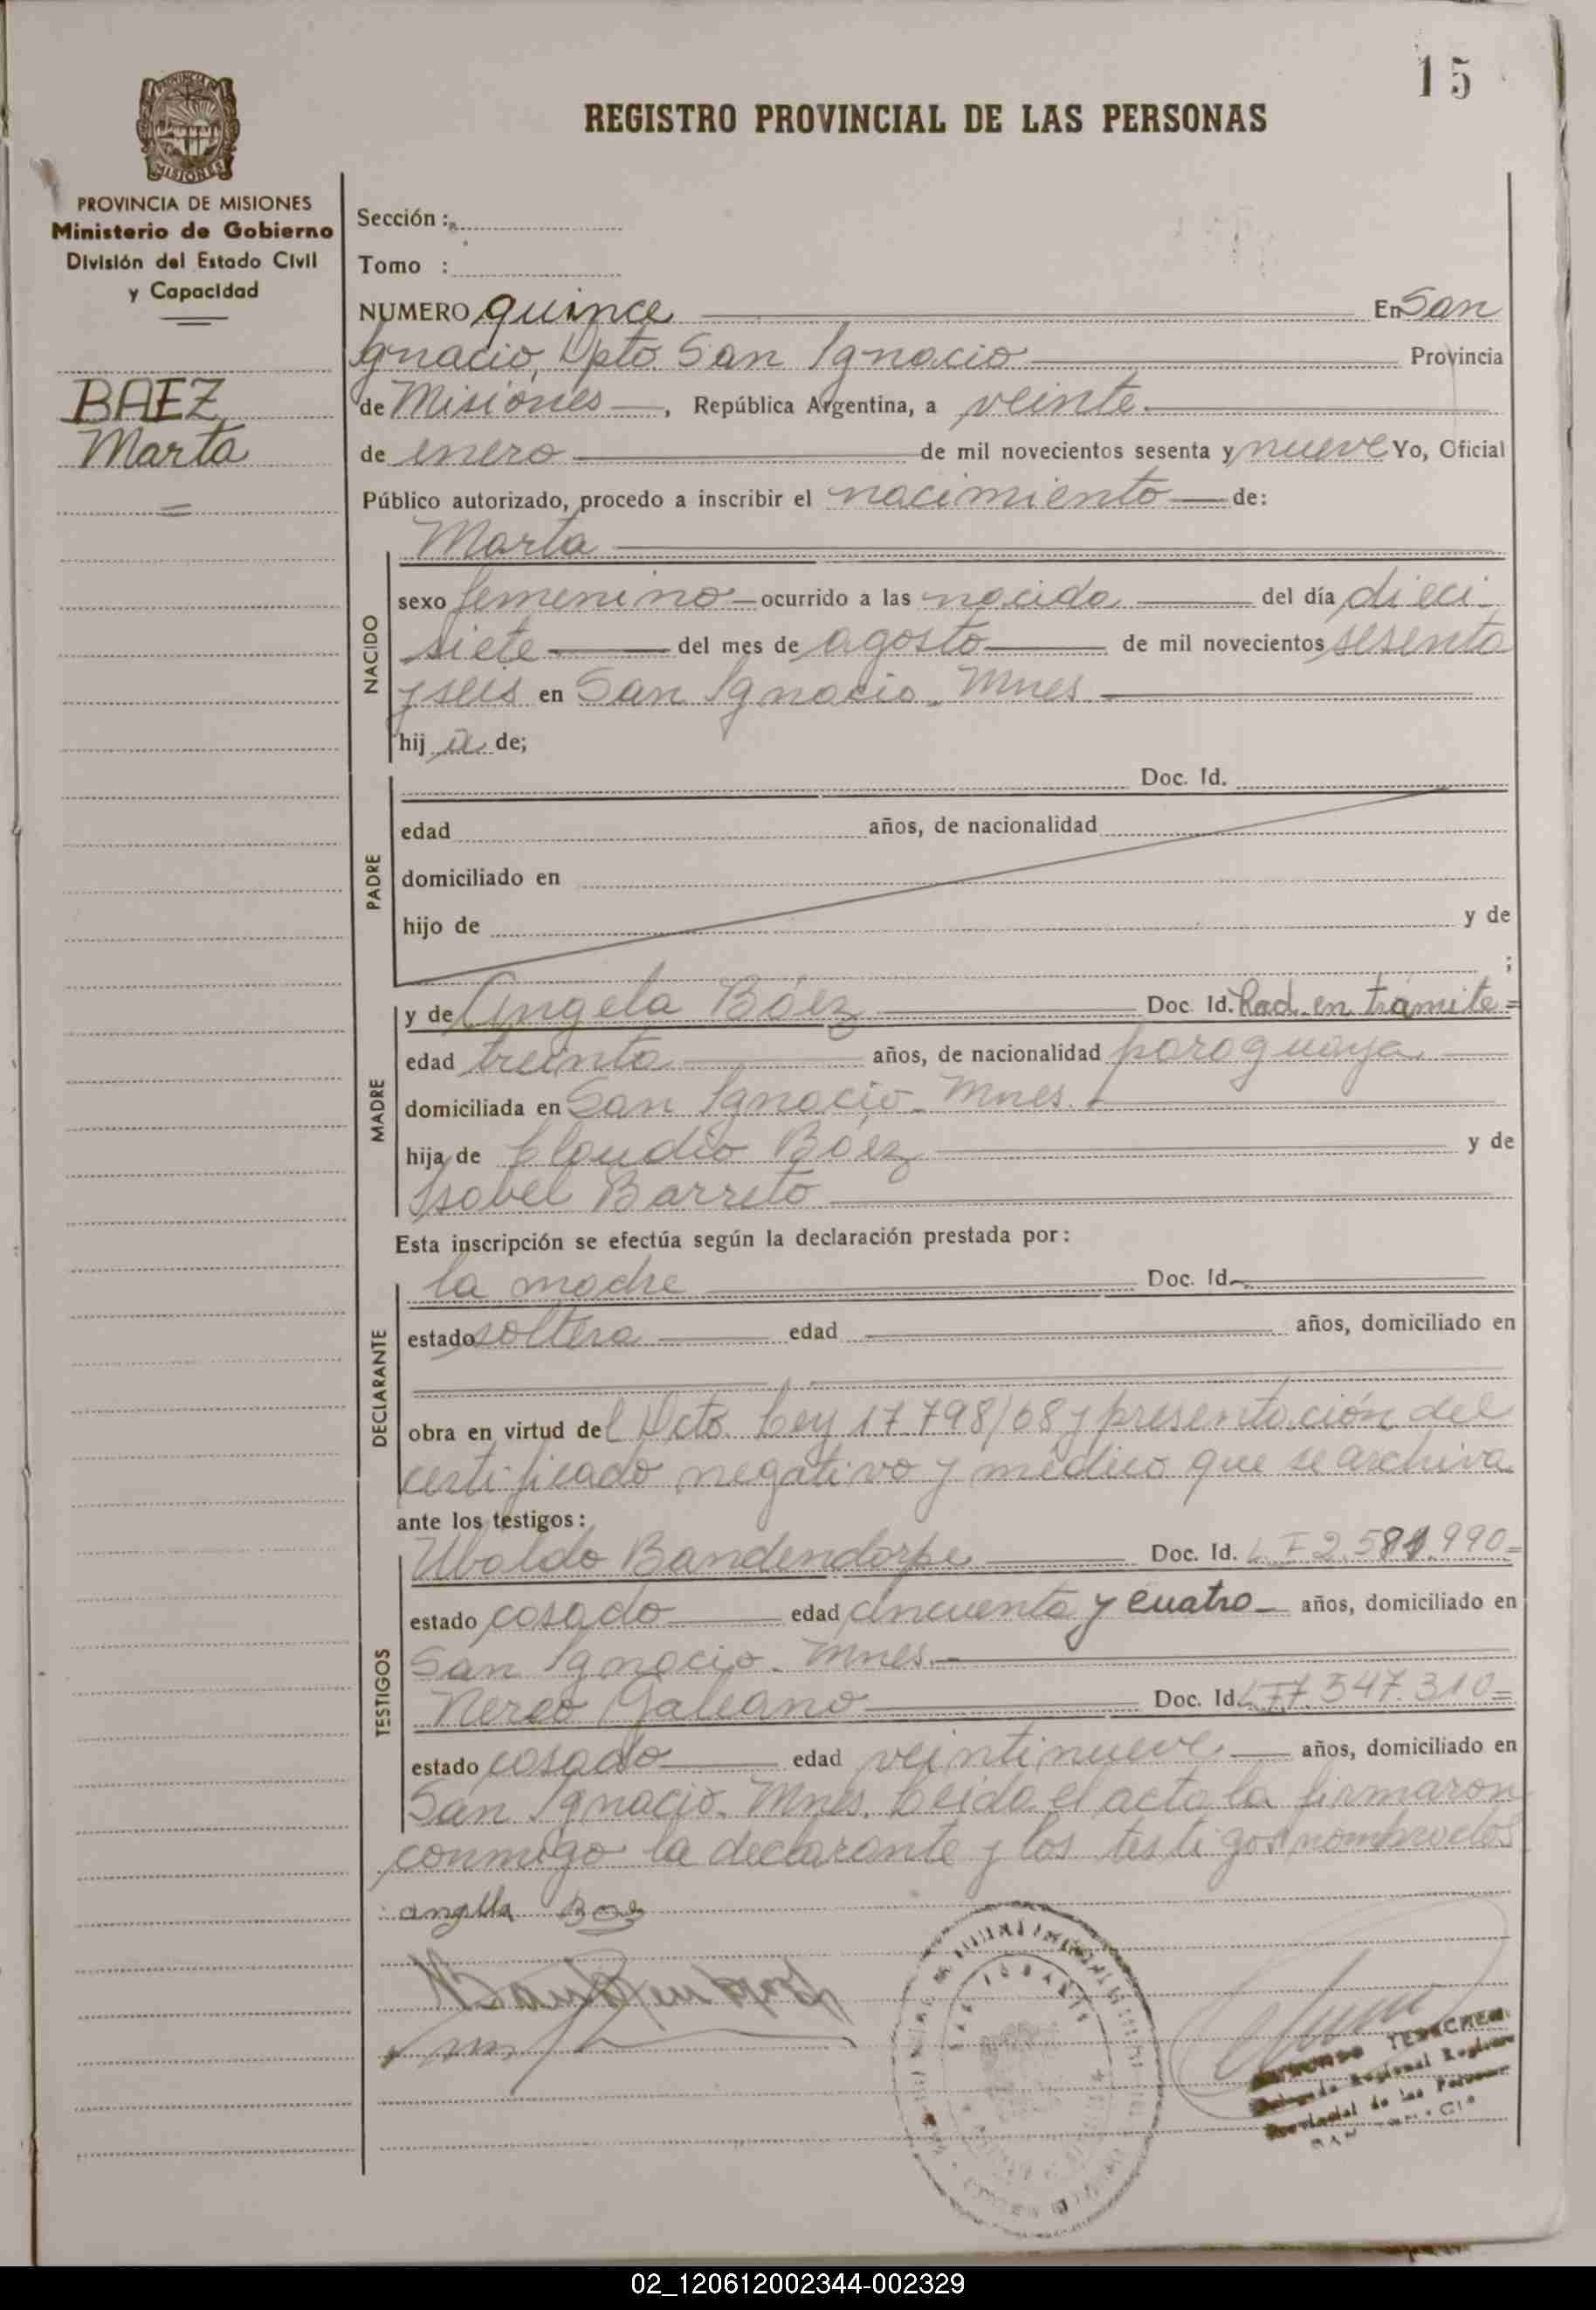 15
REGISTRO PROVINCIAL DE LAS PERSONAS
MISIONES
PROVINCIA DE MISIONES
Ministerio de Gobierno
División del Estado Civil
y Capacidad
BAEZ
Marta
Sección :
Tomo :
NUMERO quince En San
Ignacio, Dpto. San Ignacio Provincia
de Misiones, República Argentina, a veinte
de enero de mil novecientos sesenta y nueve Yo, Oficial
Público autorizado, procedo a inscribir el nacimiento de:
NACIDO
Marta
sexo femenino ocurrido a las nacida del día dieci-
siete del mes de agosto de mil novecientos sesenta
y seis en San Ignacio. Mnes.
hij a de;
PADRE
Doc. Id.
edad años, de nacionalidad
domiciliado en
hijo de y de
;
MADRE
y de Angela Báez Doc. Id. Rad. en trámite=
edad treinta años, de nacionalidad paraguaya
domiciliada en San Ignacio. Mnes.
hija de Claudio Báez y de
Isabel Barreto
Esta inscripción se efectúa según la declaración prestada por:
DECLARANTE
la madre Doc. Id.
estado soltera edad años, domiciliado en
obra en virtud del Dcto. Ley 17.798/68 y presentación del
certificado negativo y médico que se archiva
ante los testigos:
TESTIGOS
Ubaldo Bandendorpe Doc. Id. L.E 2.581.990=
estado casado edad cincuenta y cuatro años, domiciliado en
San Ignacio. Mnes.
Nereo Galeano Doc. Id. 7.547.310=
estado casado edad veintinueve años, domiciliado en
San Ignacio. Mnes. Leida el acta la firmaron
conmigo la declarante y los testigos nombrados
angela Baez
Delegado Regional Registro
Provincial de las Personas
02_120612002344-002329